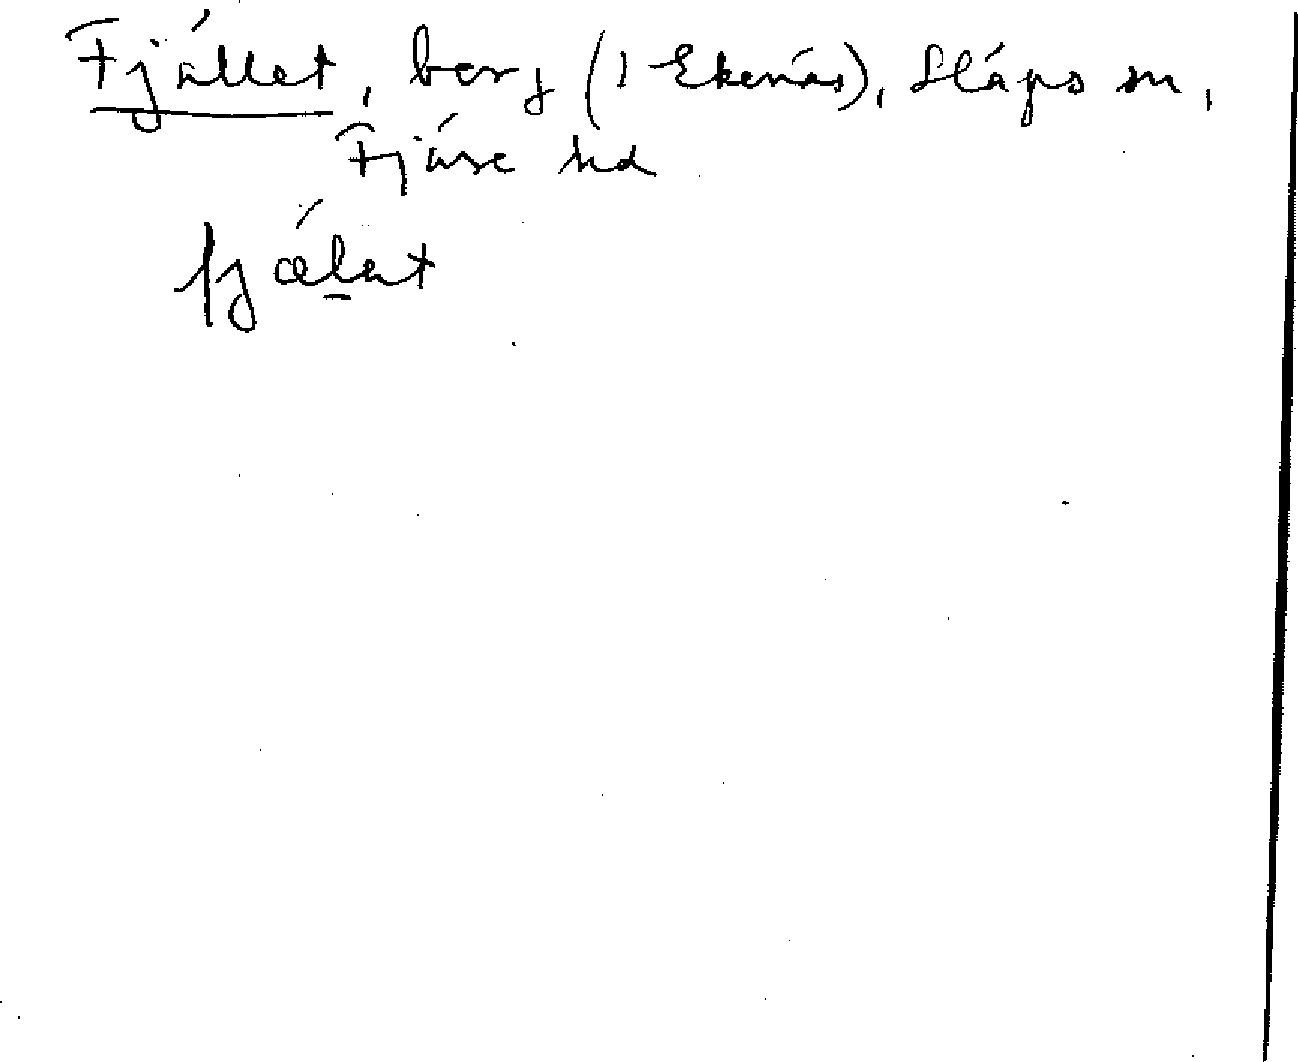 Fjället, berg (i Ekenäs), Släps sn,
Fjäre hd
fjälət